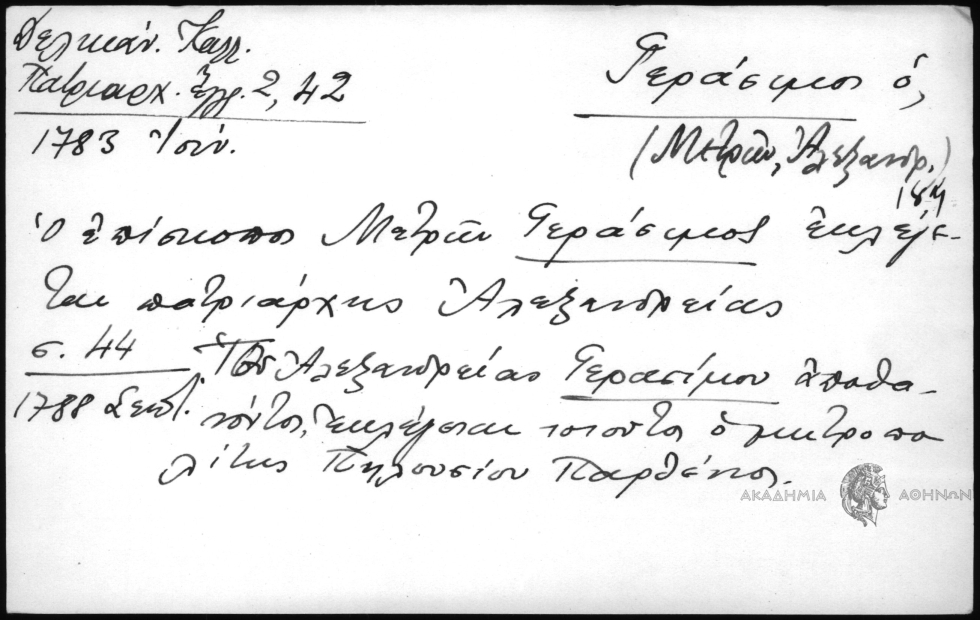 Δελικάν. Καλλ.
Πατριαρχ. Ἔγγρ. 2, 42
1783 Ἰούν.
Γεράσιμος ὁ,
(Μετρῶν, Ἀλεξανδρ.)
18ος
Ὁ ἐπίσκοπος Μετρῶν Γεράσιμος ἐκλέγε-
ται πατριάρχης Ἀλεξανδρείας
σ. 44
1788 Σεπτ.
Τοῦ Ἀλεξανδρείας Γερασίμου ἀποθα-
νόντος, ἐκλέγεται τοιοῦτος ὁ μητροπο
λίτης Πηλουσίου Παρθένιος.
ΑΚΑΔΗΜΙΑ ΑΘΗΝΩΝ